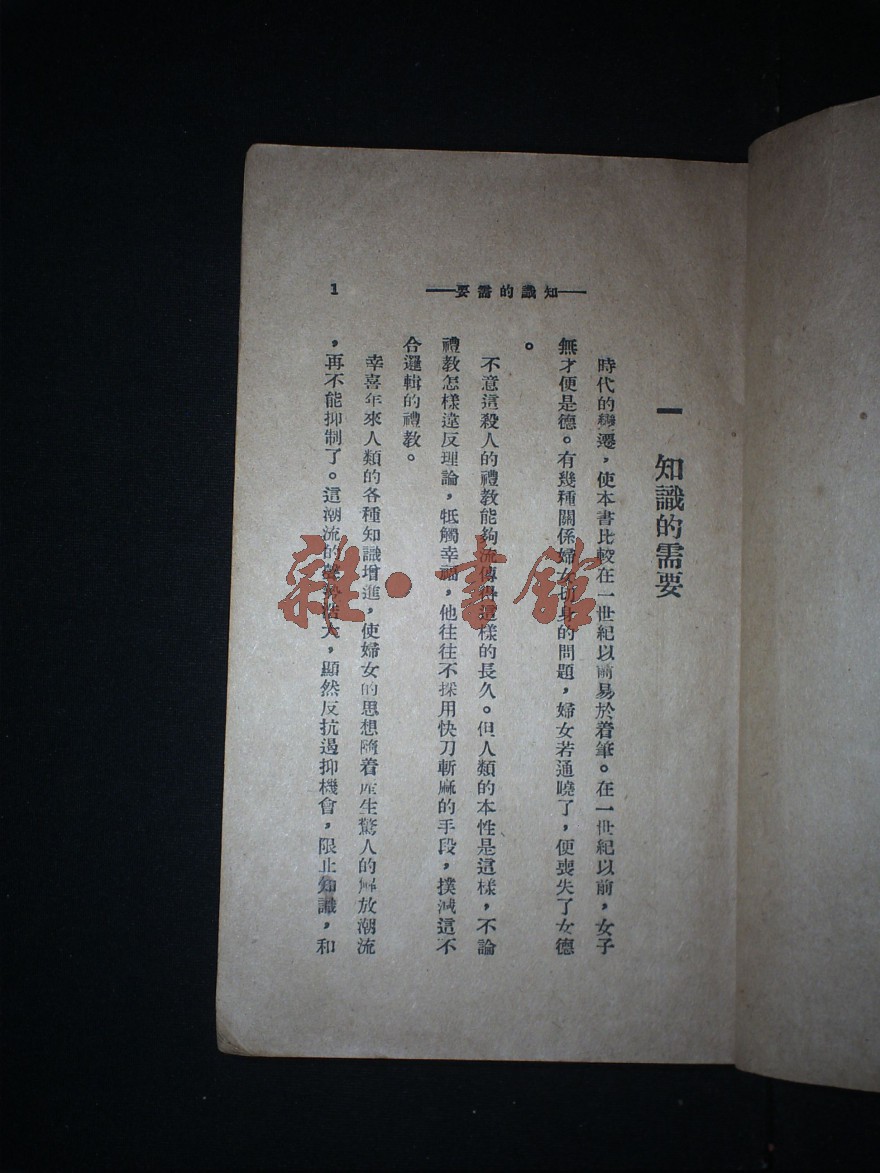 知識的需要
1
一 知識的需要
時代的變遷，使本書比較在一世紀以前易於着筆。在一世紀以前，女子
無才便是德。有幾種關係婦女切身的問題，婦女若通曉了，便喪失了女德
。
不意這殺人的禮教能夠流傳得這樣的長久。但人類的本性是這樣，不論
禮教怎樣違反理論，牴觸幸福，他往往不採用快刀斬麻的手段，撲滅這不
合邏輯的禮教。
幸喜年來人類的各種知識增進，使婦女的思想隨着產生驚人的解放潮流
，再不能抑制了。這潮流的聲勢浩大，顯然反抗遏抑機會，限止知識，和
雜·書館